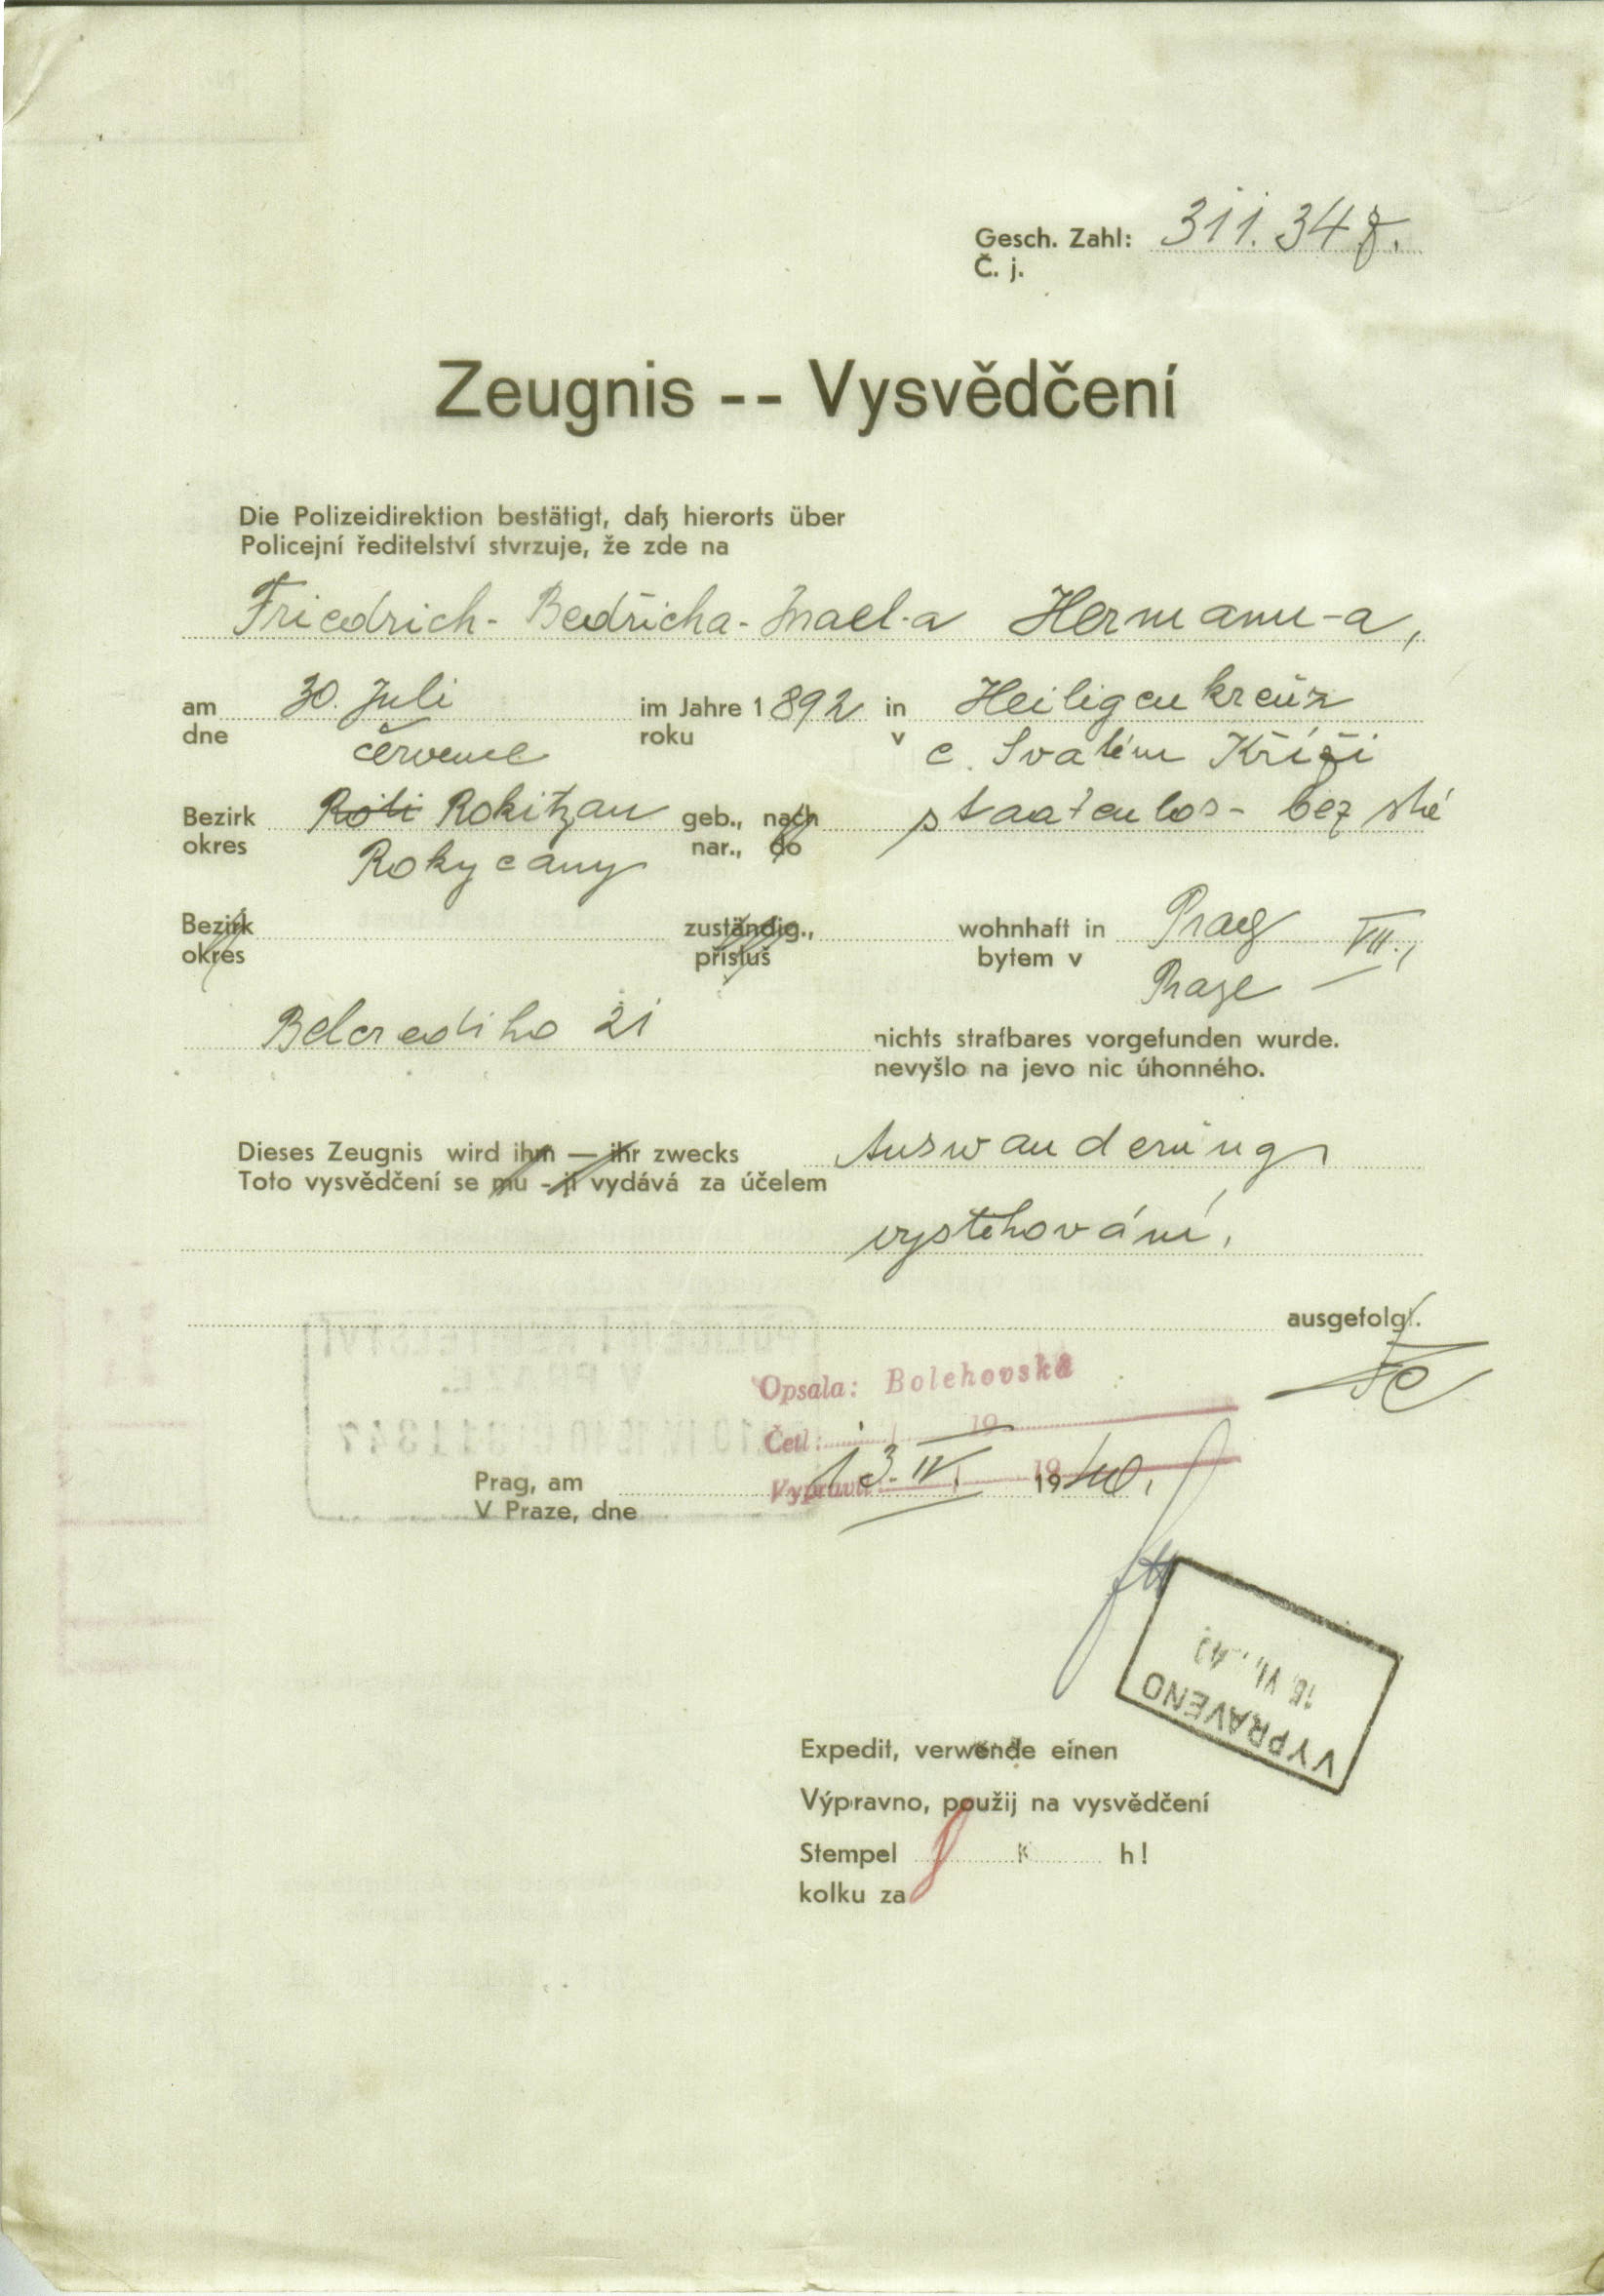 Gesch. Zahl: 311.347.
Č. j.
Zeugnis -- Vysvědčení
Die Polizeidirektion bestätigt, daß hierorts über
Policejní ředitelství stvrzuje, že zde na
Friedrich- Bedřicha- Israel-a Hermann-a,
am 30. Juli im Jahre 1892 in Heiligenkreuz
dne července roku v Svatém Kříži
Bezirk Rokitzan geb., nach staatenlos- bez
okres Rokycany nar., do
Bezirk zuständig., wohnhaft in Prag VII.,
okres přísluš bytem v Praze
Belcrediho 21 nichts strafbares vorgefunden wurde.
nevyšlo na jevo nic úhonného.
Dieses Zeugnis wird ihm — ihr zwecks Auswanderung
Toto vysvědčení se mu - jí vydává za účelem
vystěhování.
ausgefolgt.
Opsala: Bolehovská
Četl: 19
Vypravil 19
Prag, am 13. IV. 1940.
V Praze, dne
VYPRAVENO
Expedit, verwende einen
Výpravno, použij na vysvědčení
Stempel K h!
kolku za